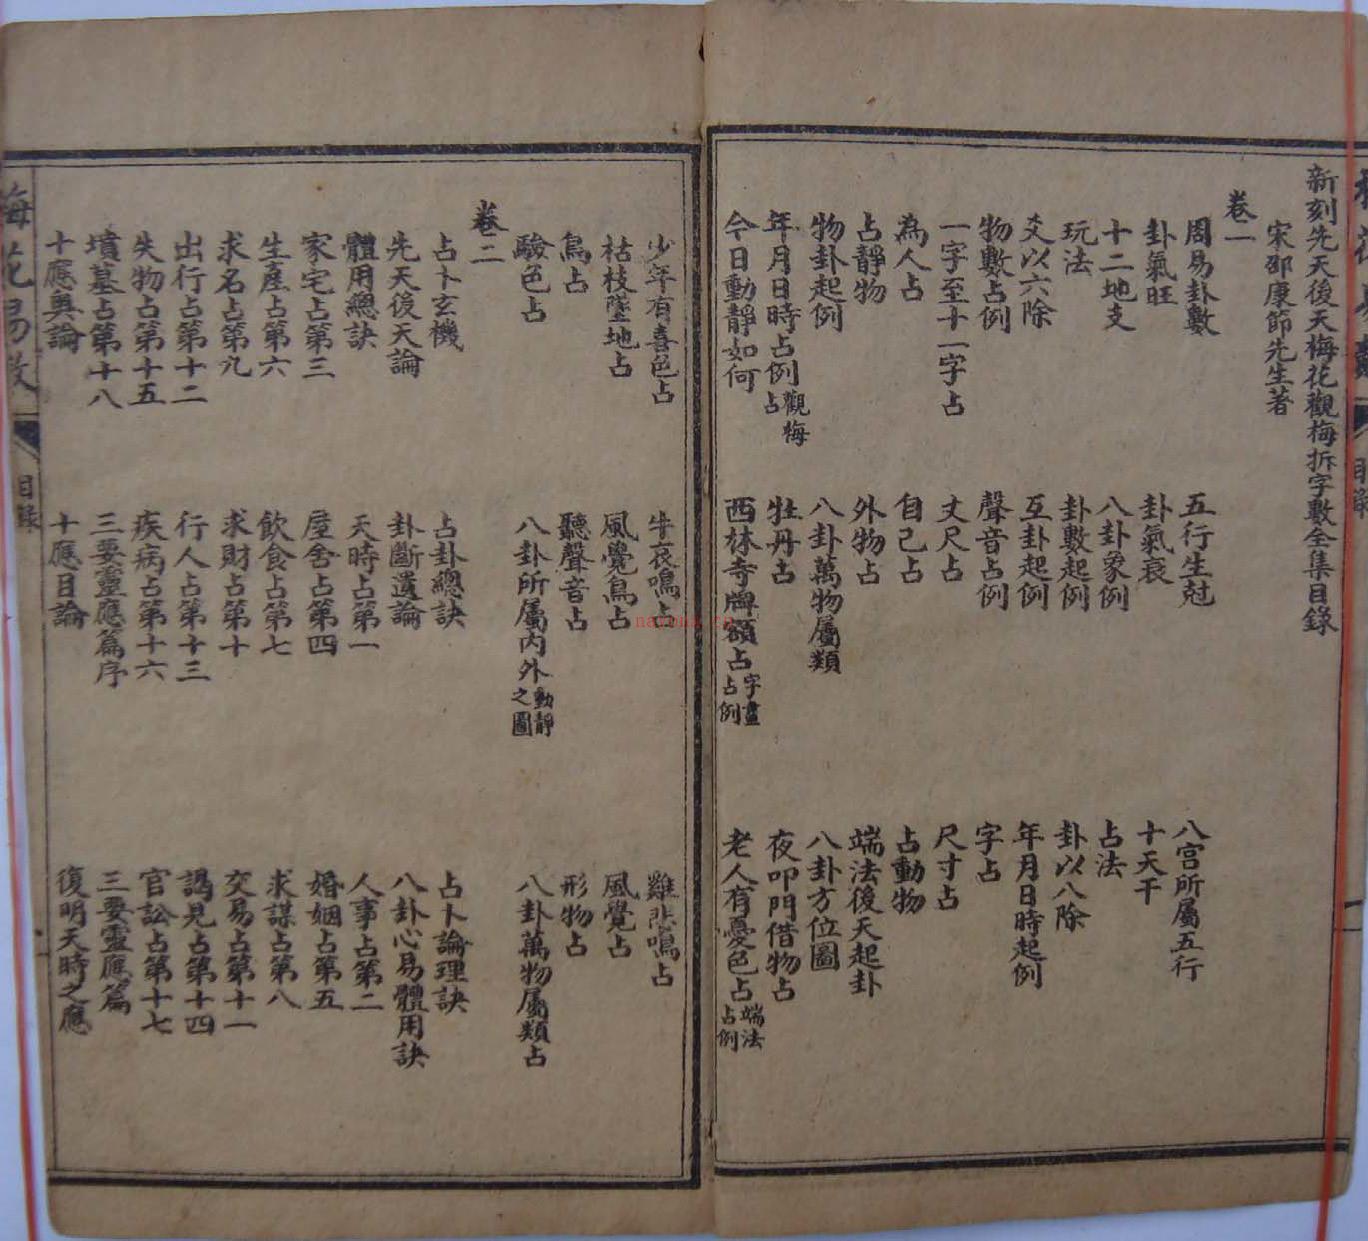 新刻先天後天梅花觀梅拆字數全集目錄
宋邵康節先生著
卷一
周易卦數　五行生尅　八宫所屬五行
卦氣旺　卦氣衰　十天干
十二地支　八卦象例　占法
玩法　卦數起例　卦以八除
爻以六除　互卦起例　年月日時起例
物數占例　聲音占例　字占
一字至十一字占　丈尺占　尺寸占
為人占　自己占　占動物
占靜物　外物占　端法後天起卦
物卦起例　八卦萬物屬類　八卦方位圖
年月日時占例觀梅占　牡丹占　夜叩門借物占
今日動靜如何　西林寺牌額占字畫占例　老人有憂色占端法占例
少年有喜色占　牛哀鳴占　雞悲鳴占
枯枝墜地占　風覺鳥占　風覺占
鳥占　聽聲音占　形物占
驗色占　八卦所屬內外動靜之圖　八卦萬物屬類占
卷二
占卜玄機　占卦總訣　占卜論理訣
先天後天論　卦斷遺論　八卦心易體用訣
體用總訣　天時占第一　人事占第二
家宅占第三　屋舍占第四　婚姻占第五
生產占第六　飲食占第七　求謀占第八
求名占第九　求財占第十　交易占第十一
出行占第十二　行人占第十三　謁見占第十四
失物占第十五　疾病占第十六　官訟占第十七
墳墓占第十八　三要靈應篇序　三要靈應篇
十應奧論　十應目論　復明天時之應
梅花易數　目錄